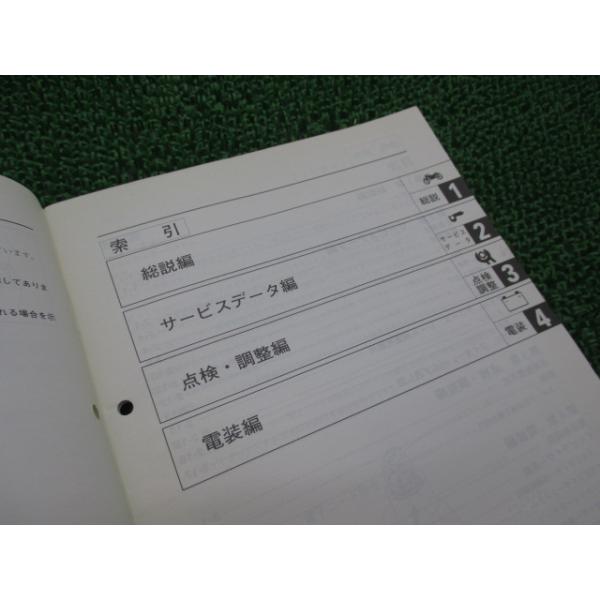 います。
してありま
れる場合を示
索引
総説編
総説
1
サービスデータ編
サービス
データ
2
点検・調整編
点検
調整
3
電装編
電装
4